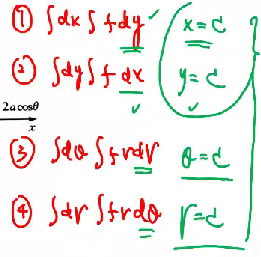 ① ∫dx ∫ f dy ✓ x = c
② ∫dy ∫ f dx y = c
✓ ✓
2a cosθ
x
③ ∫dθ ∫ f r dr θ = c
④ ∫dr ∫ f r dθ r = c